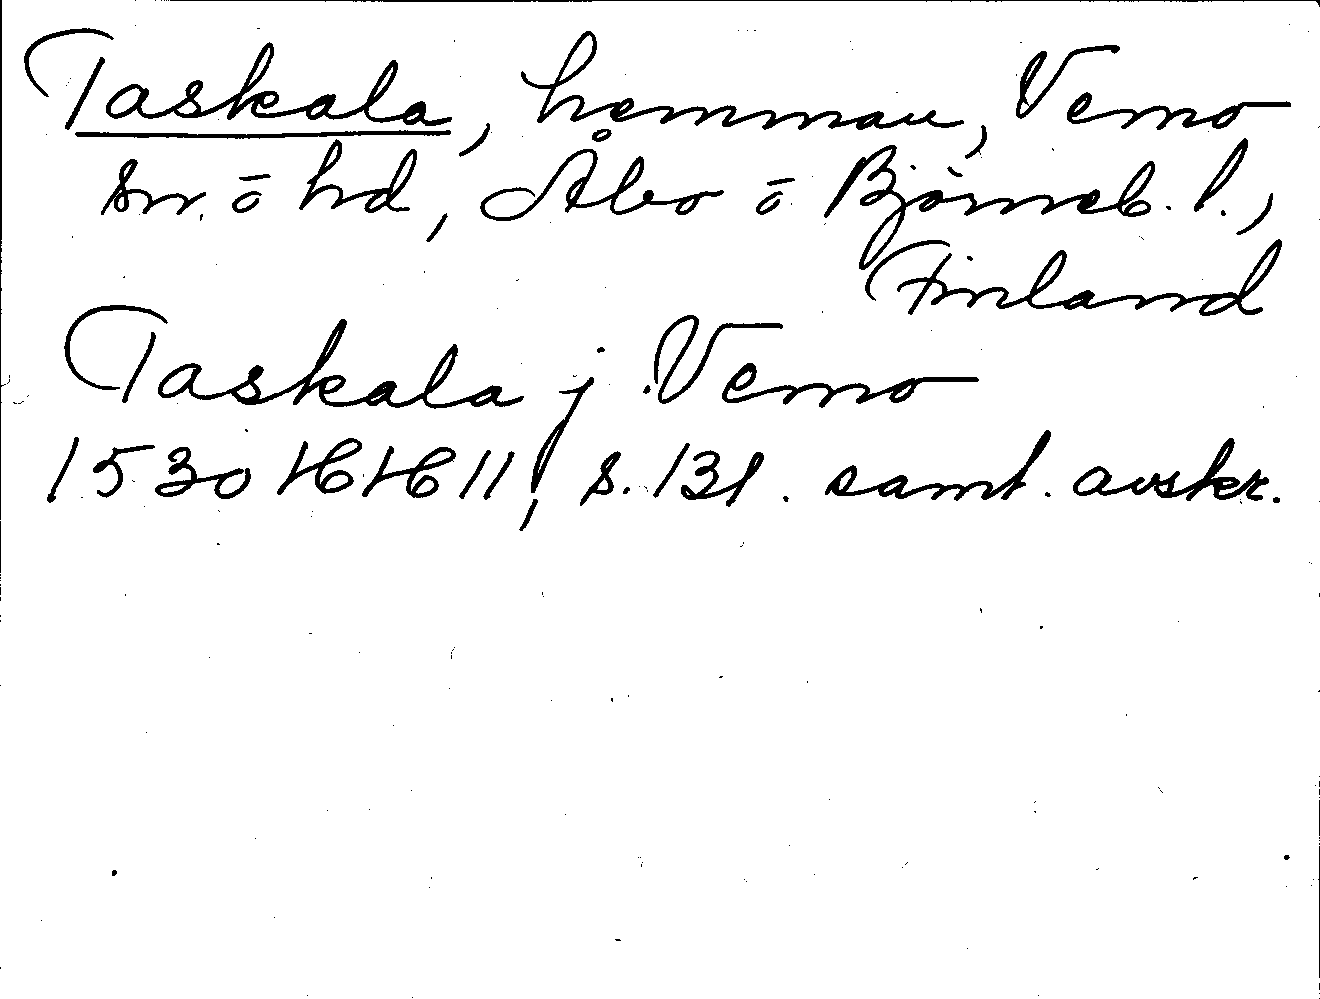 Taskala, hemman, Vemo
sn. ō hd, Åbo ō Björneb. l.,
Finland
Taskala j Vemo
1530 16/6 11, s. 131. samt. avskr.